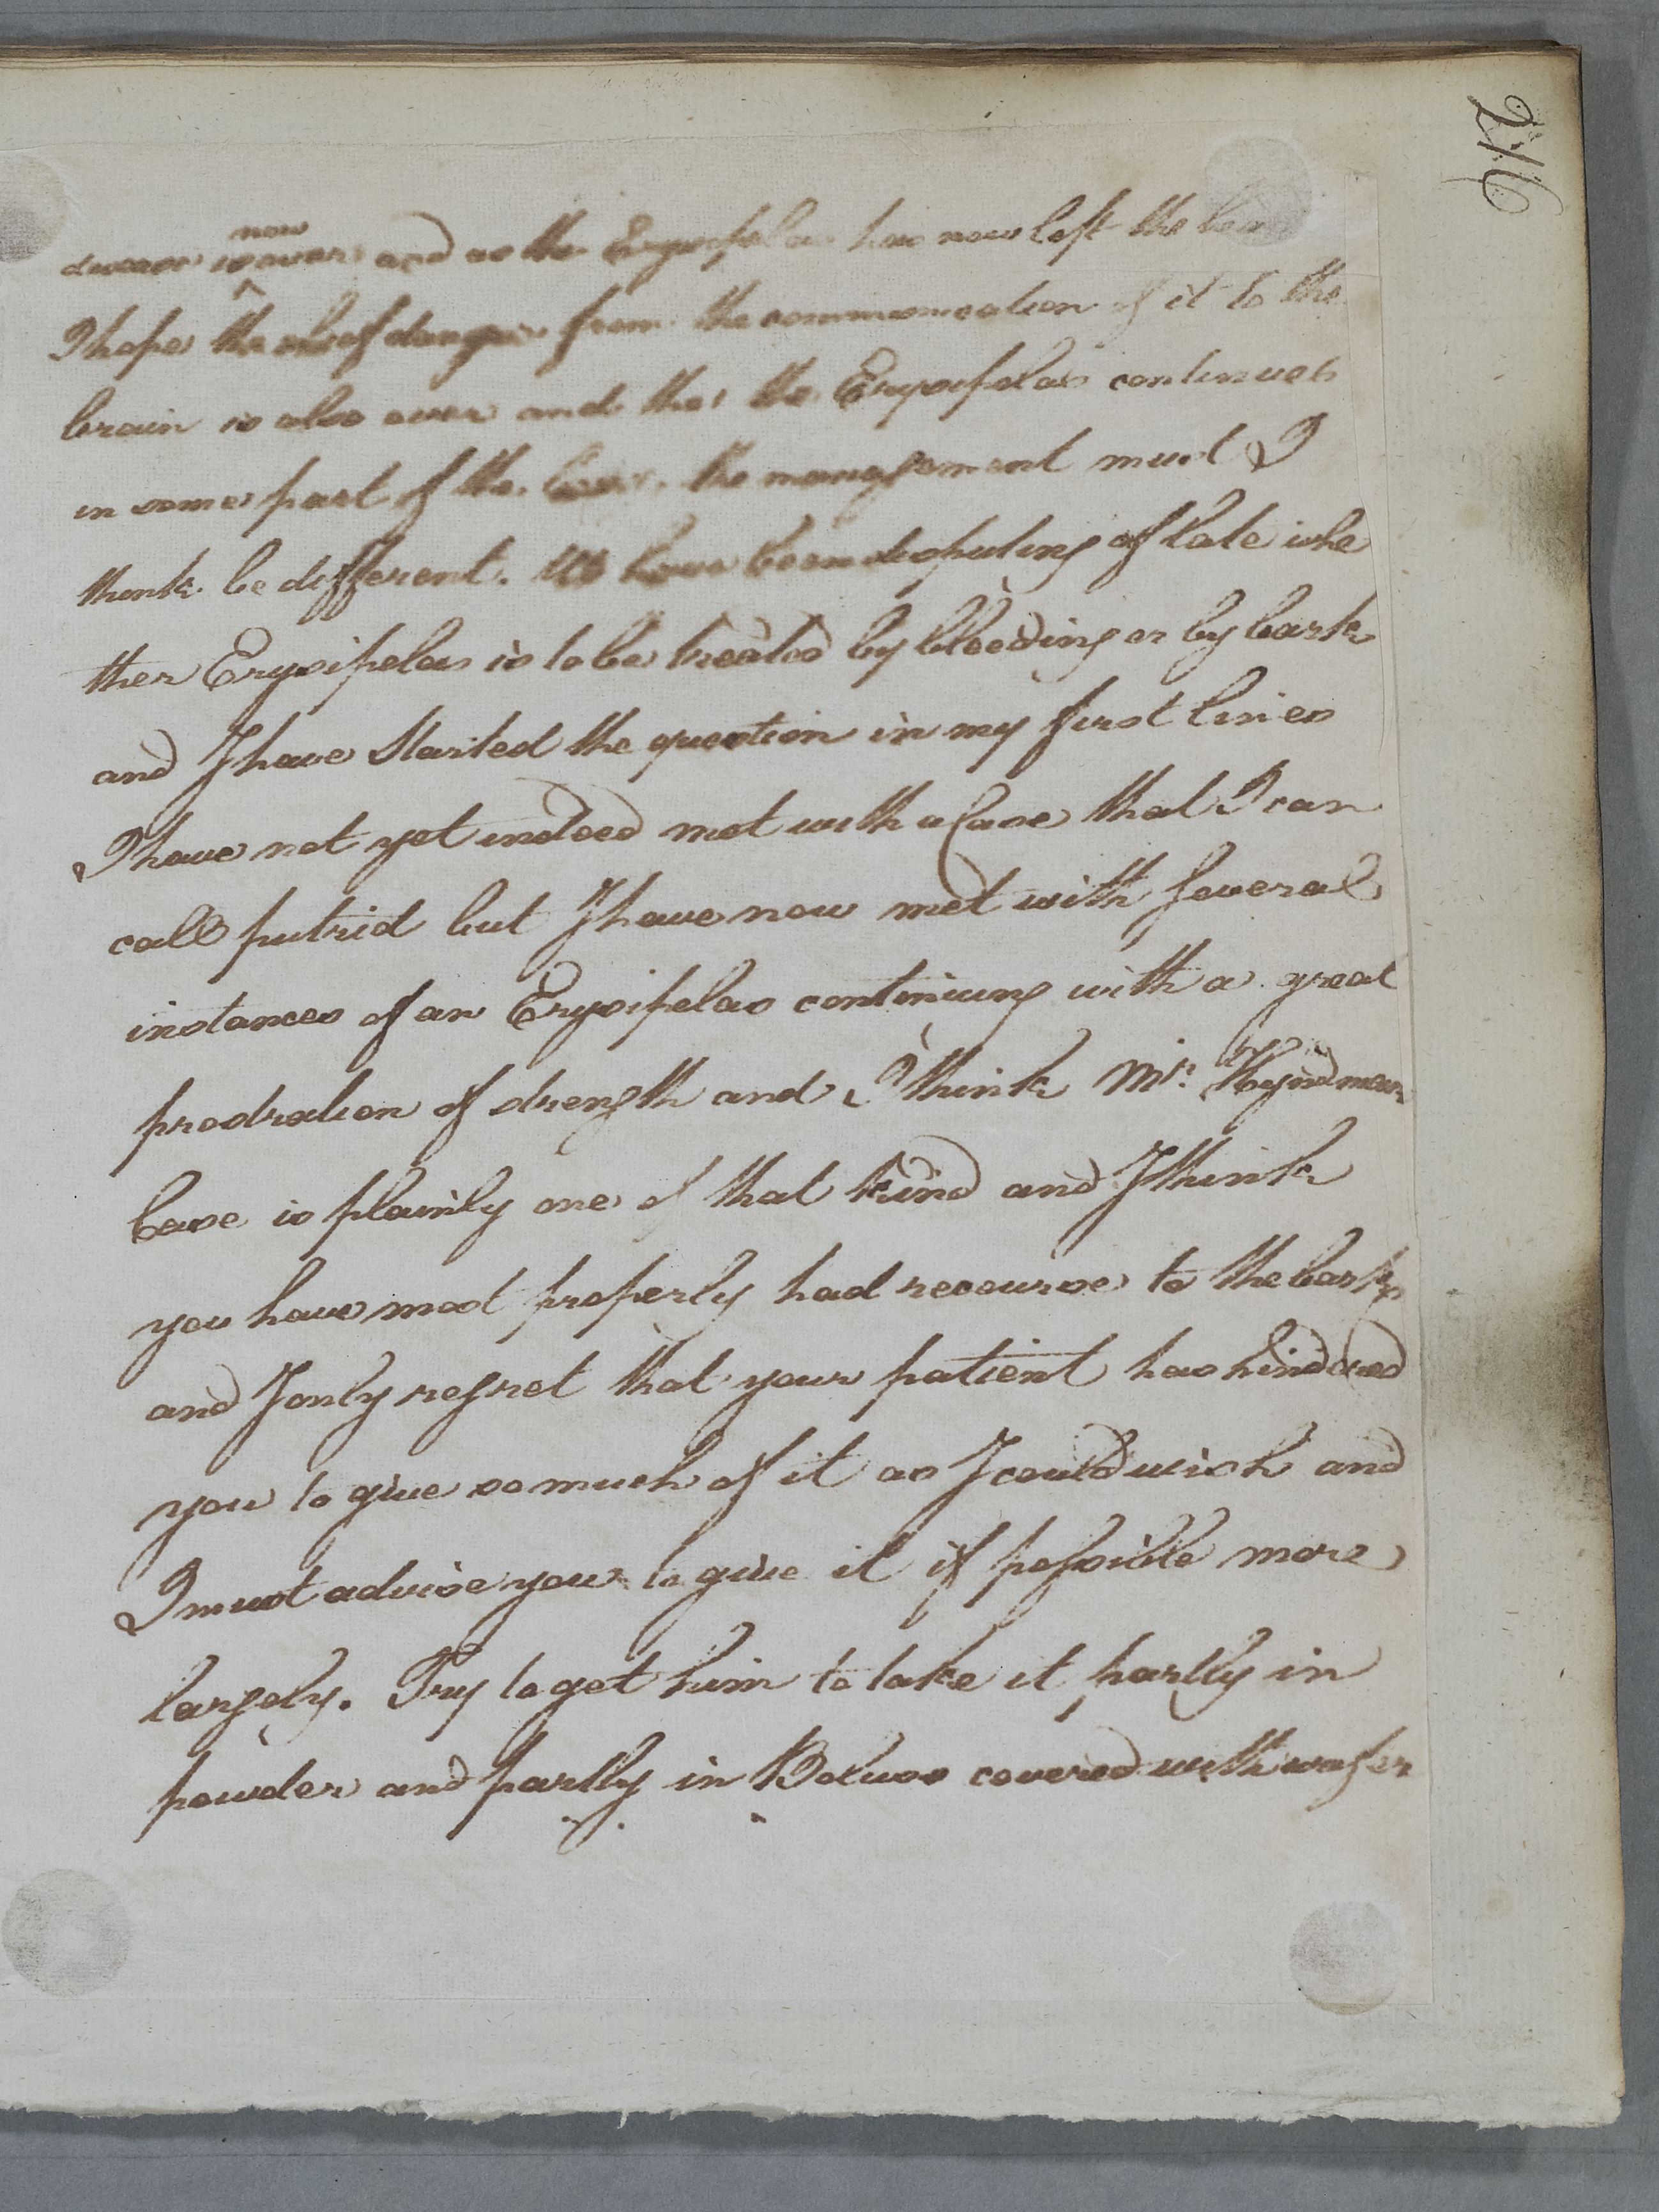 246
now
disease is ^ over and as the Erysipelas has now left the
I hope the chief danger from the communication of it to the
brain is also over and tho' the Erysipelas continues
in some part of the the management must I
think be different. We have been disputing of late whe
ther Erysipelas is to be treated by bleeding or by bark
and I have started the question in my first lines
I have not yet indeed met with a Case that I can
call putrid but I have now met with several
instances of an Erysipelas continuing with a great
prostration of strength and I think Mr. Hyndman
Case is plainly one of that kind and I think
you have most properly had recourse to the bark
and I only regret that your patient has hindered
you to give so much of it as I could wish and
I must advise you to give it if possible more
largely. Try to get him to take it partly in
powder and partly in Boluss covered with wafer